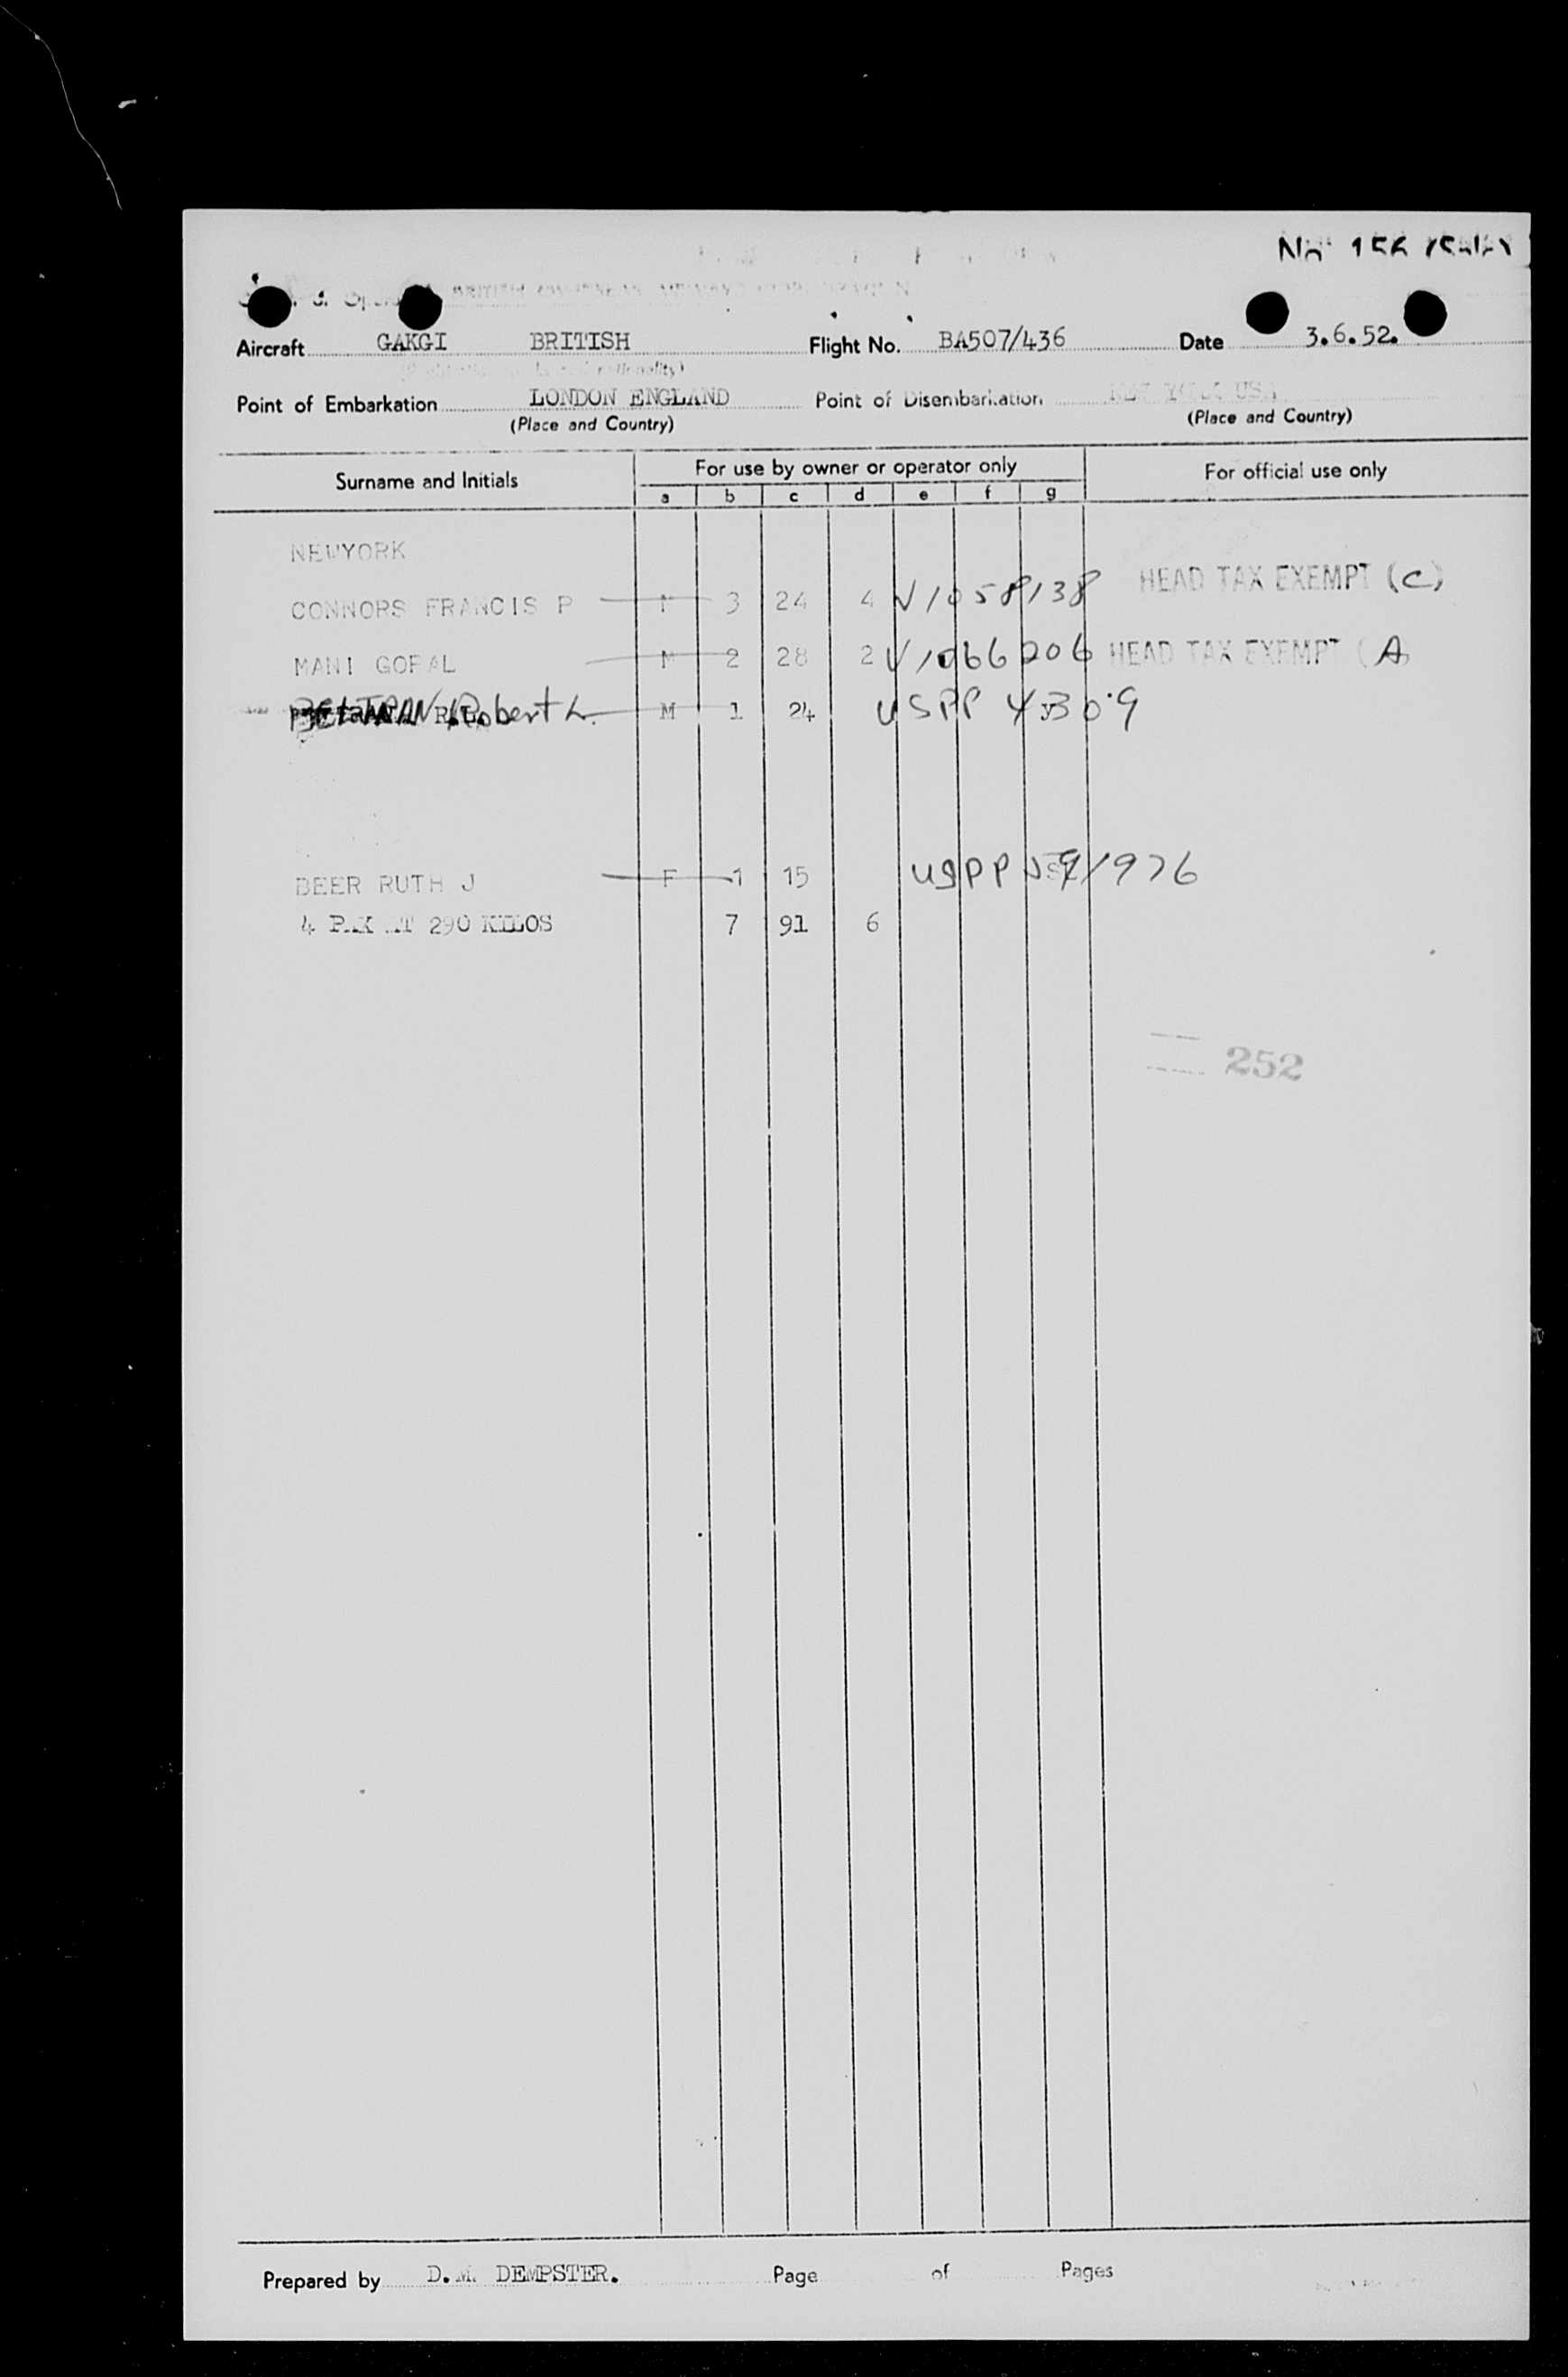 Aircraft GAKGI BRITISH Flight No. BA507/436 Date 3.6.52.
Point of Embarkation LONDON ENGLAND Point of Disembarkation USA
(Place and Country) (Place and Country)
Surname and Initials For use by owner or operator only For official use only
a b c d e f g
NEWYORK
CONNORS FRANCIS P M 3 24 4 V1058138 HEAD TAX EXEMPT (C)
MANI GOPAL M 2 28 2 V1066206 HEAD TAX EXEMPT (A
BELTRAN Robert L. M 1 24 USPP
BEER RUTH J F 1 15 USPP
4 PAX AT 290 KILOS 7 91 6
252
Prepared by D.M. DEMPSTER. Page of Pages